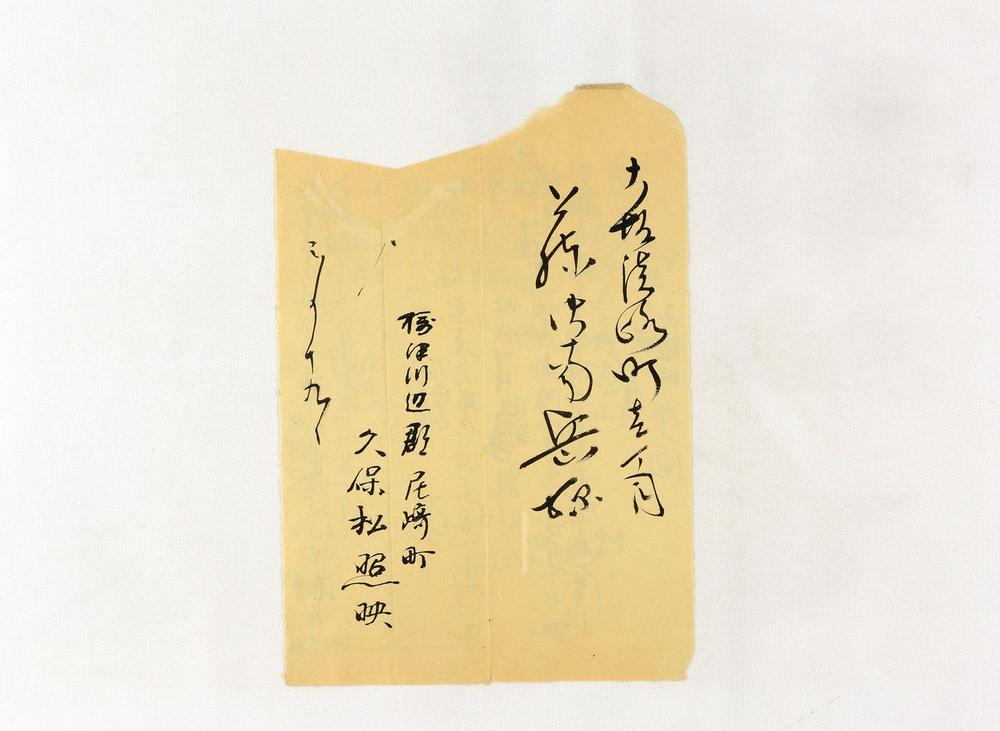 大坂淡路町壱丁目
藤沢南岳様
摂津川辺郡尼崎町
久保松照映
三月十九日